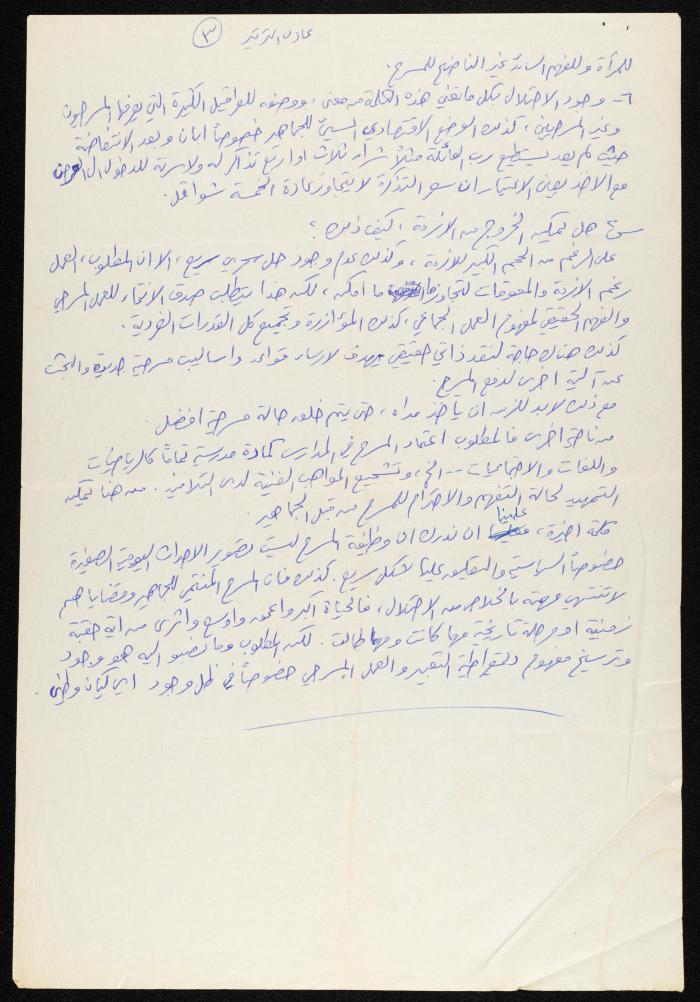 عادل الترتير ٣
للمرأة وللفهم السائد غير الناضج للمسرح.
٦- وجود الاحتلال بكل ما تعني هذه الكلمة من معنى، ووضعه للعراقيل الكبيرة التي يعرفها المسرحيون
وغير المسرحيين، كذلك الوضع الاقتصادي السيئ للجماهير خصوصاً ابان وبعد الانتفاضة
حيث لم يعد يستطيع رب العائلة مثلاً شراء ثلاث او اربع تذاكر له ولاسرته للدخول الى العرض
مع الاخذ بعين الاعتبار ان سعر التذكرة لا يتجاوز عادة الخمسة شواقل.
س٤ هل يمكن الخروج من الازمة، كيف ذلك؟
على الرغم من الحجم الكبير للازمة، وكذلك عدم وجود حل سحري سريع، الا ان المطلوب، العمل
رغم الازمة والمعوقات للتجاوز ما امكن، لكن هذا يتطلب صدق الانتماء للعمل المسرحي
والفهم الحقيقي لمفهوم العمل الجماعي، كذلك المؤازرة وتجميع كل القدرات الفردية.
كذلك هناك حاجة لنقد ذاتي حقيقي يهدف لارساء قواعد واساليب مسرحية جديدة والبحث
عن آلية اخرى لدفع المسرح.
مع ذلك لابد للزمن ان ياخذ مداه، حتى يتم خلق حالة مسرحية افضل.
من ناحية اخرى فالمطلوب اعتماد المسرح في المدارس كمادة مدرسية تماماً كالرياضيات
واللغات والاجتماعيات -- الخ، وتشجيع المواهب الفنية لدى التلاميذ. من هنا يمكن
التمهيد لحالة التفهم والاحترام للمسرح من قبل الجماهير.
كلمة اخيرة، علينا ان ندرك ان وظيفة المسرح ليست تصوير الاحداث اليومية الصغيرة
خصوصاً السياسية والتعليق عليها بشكل سريع. كذلك فان المسرح المنتمي للجماهير وقضاياهم
لا تنتهي مهمته بالخلاص من الاحتلال، فالحياة اكبر واعمق واوسع واثرى من اية حقبة
زمنية او مرحلة تاريخية مهما كانت ومهما طالت. لكن المطلوب وما نصبو اليه هو وجود
وترسيخ مفهوم ديمقراطية التعبير والعمل المسرحي خصوصاً في ظل وجود اي كيان وطني.